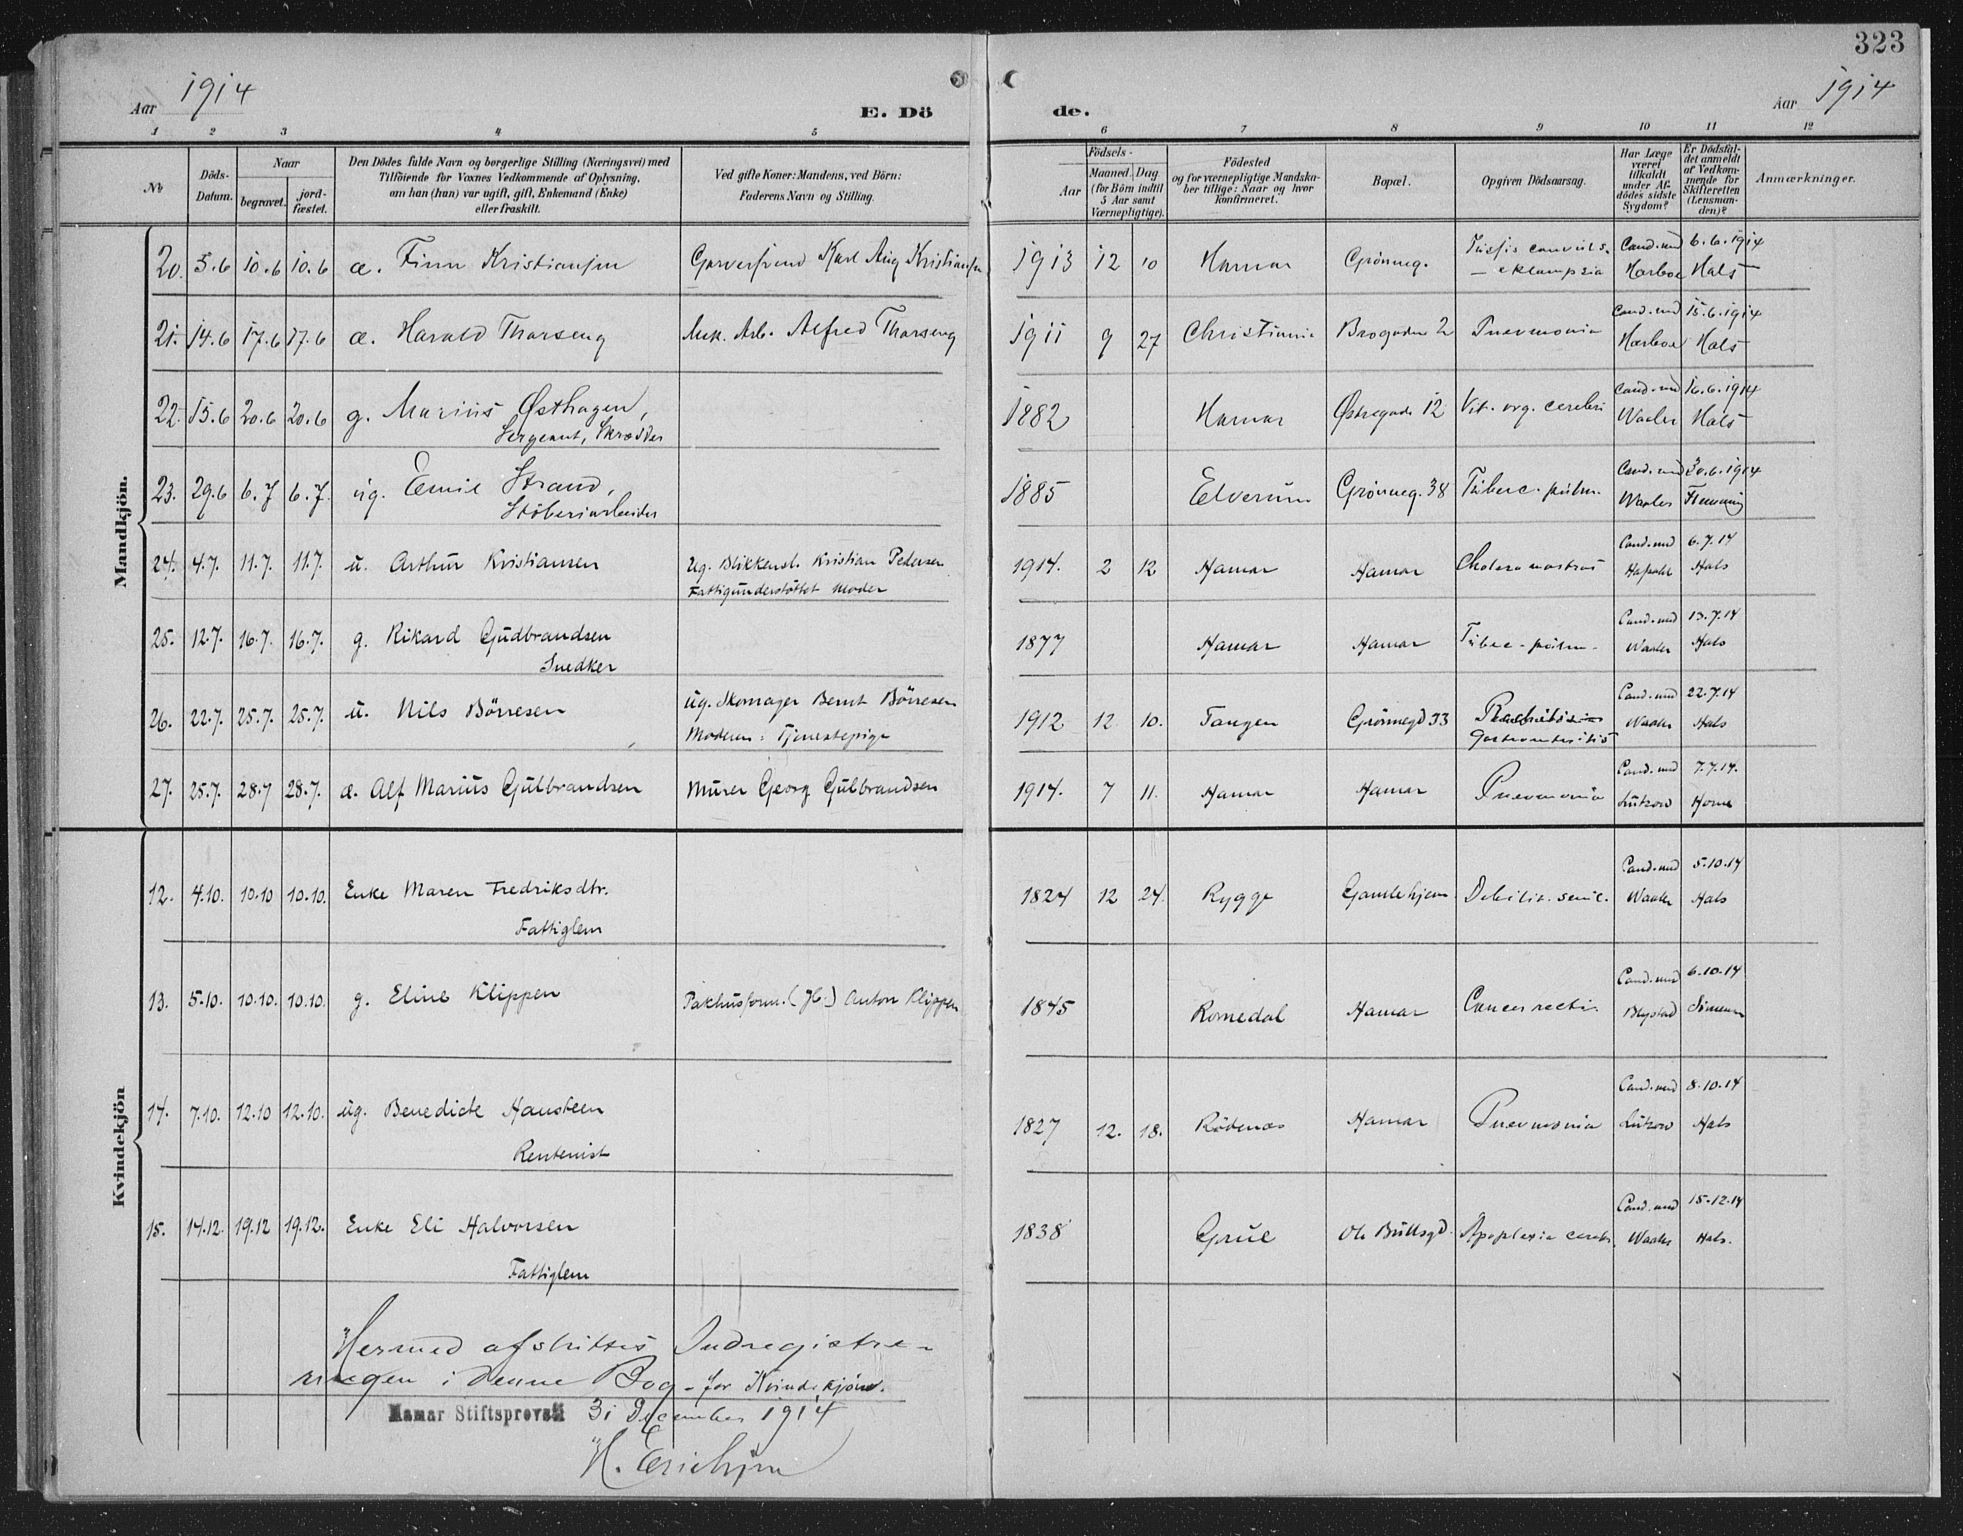 323
Aar 1914
E. Dö
de.
Aar 1914
1 2 3 4 5 6 7 8 9 10 11 12
No
Döds-Datum.
Naar
begravet.
jord-fæstet.
Den Dödes fulde Navn og borgerlige Stilling (Næringsvei) med
Tilföiende for Voxnes Vedkommende af Oplysning,
om han (hun) var ugift, gift, Enkemand (Enke)
eller fraskilt.
Ved gifte Koner: Mandens, ved Börn:
Faderens Navn og Stilling.
Födsels-
Aar
Maaned. Dag
(for Börn indtil
5 Aar samt
Værnepligtige).
Födested
og for værnepligtige Mandska-
ber tillige: Naar og hvor
konfirmeret.
Bopæl.
Opgiven Dödsaarsag.
Har Læge
været
tilkaldt
under Af-
dödes sidste
Sygdom?
Er Dödsfal-
det anmeldt
af Vedkom-
mende for
Skifteretten
(Lensman-
den)?
Anmærkninger.
Mandkjön.
20. 5.6 10.6 10.6 æ. Finn Kristiansen Garversvend Karl Aug Kristiansen 1913 12 10 Hamar Grönneg. Cand. med 6.6.1914
— eklampsia Harboe Hals
21. 14.6 17.6 17.6 æ. Harald Thorseng Mek. Arb. Alfred Thorseng 1911 9 27 Christiania Brogaden 2 Pnevmonia Cand. med 15.6.1914
Harboe Hals
22. 15.6 20.6 20.6 g. Marius Østhagen, 1882 Hamar Østregade 12 Vit. org. cerebri Cand. med 16.6.1914
Sergeant, Skrædder Waaler Hals
23. 29.6 6.7 6.7. ug. Emil Strand, 1885 Elverum Grönneg. 38 Tuberc. pulm. Cand. med 30.6.1914
Stöberiarbeider Waaler Flemming
24. 4.7. 11.7. 11.7. u. Arthur Kristiansen Ug. Blikkensl. Kristian Pedersen 1914. 2 12 Hamar Hamar Cholera nostras Cand. med 6.7.14
Fattigunderstöttet Moder Hals
25. 12.7. 16.7. 16.7. g. Rikard Gudbrandsen 1877 Hamar Hamar Tuberc. pulm. Cand. med 13.7.14
Snedker Waaler Hals
26. 22.7. 25.7. 25.7. u. Nils Börresen ug. Skomager Bernt Börresen 1912. 12. 10. Tangen Grönnegd 33 Cand. med 22.7.14
Moderen: Tjenestepige Gastroenteritis Waaler Hals
27. 25.7. 28.7 28.7. æ. Alf Marius Gulbrandsen Murer Georg Gulbrandsen 1914. 7 11. Hamar Hamar Pnevmonia Cand. med 7.7.14.
Lützow Horne
Kvindekjön
12. 4.10. 10.10 10.10. Enke Maren Fredriksdtr. 1824 12 24. Rygge Gamlehjem Debilit. senil. Cand. med 5.10.14
Fattiglem Waaler Hals
13. 5.10. 10.10. 10.10. g. Eline Klippen Pakhusform. (Jb.) Anton Klippen 1845 Romedal Hamar Cancer recti Cand. med 6.10.14
Blystad Simensen
14. 7.10. 12.10 12.10. ug. Benedicte Hansteen 1827 12. 18. Rödenæs Hamar Pnevmonia Cand. med 8.10.14
Rentenist Lützow Hals
15. 14.12. 19.12 19.12. Enke Eli Halvorsen 1838 Grue Ole Bullsgd. Apoplexia cerebr. Cand. med 15.12.14
Fattiglem Waaler Hals.
Hermed afsluttes Indregistre-
ringen i denne Bog – for Kvindekjön.
Hamar Stiftsprovsti 31 December 1914